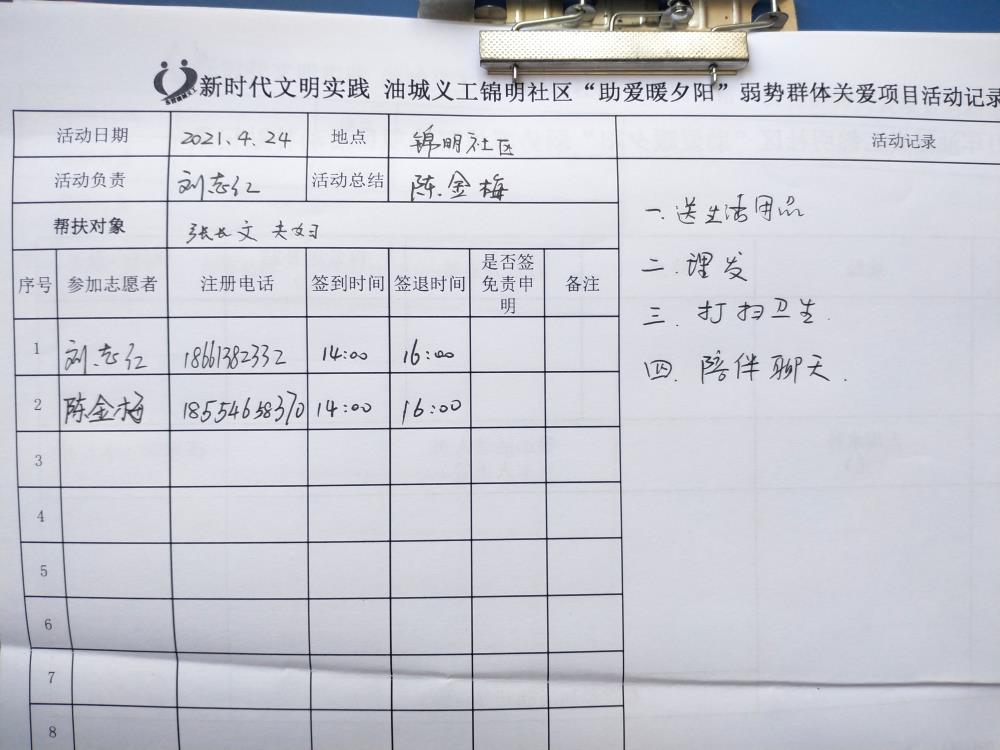 新时代文明实践 油城义工锦明社区“助爱暖夕阳”弱势群体关爱项目活动记录
活动日期 2021.4.24 地点 锦明社区
活动负责 刘志仁 活动总结 陈金梅
帮扶对象 张长文 夫妇
序号 参加志愿者 注册电话 签到时间 签退时间 是否签免责申明 备注
1 刘志仁 18661382332 14:00 16:00
2 陈金梅 18554658370 14:00 16:00
3
4
5
6
7
8
活动记录
一.送生活用品
二.理发
三.打扫卫生.
四.陪伴聊天.